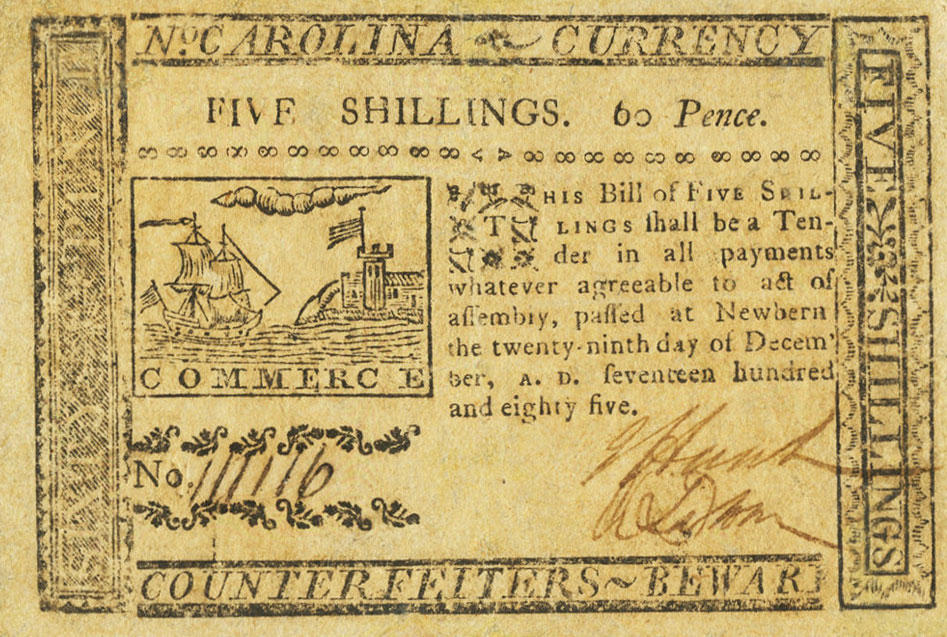 No. CAROLINA CURRENCY
FIVE SHILLINGS. 60 Pence.
THIS Bill of FIVE SHIL-
LINGS ſhall be a Ten-
der in all payments
whatever agreeable to act of
aſſembly, paſſed at Newbern
the twenty-ninth day of Decem-
ber, A. D. ſeventeen hundred
and eighty five.
COMMERCE
No.
COUNTERFEITERS~BEWARE
FIVE SHILLINGS